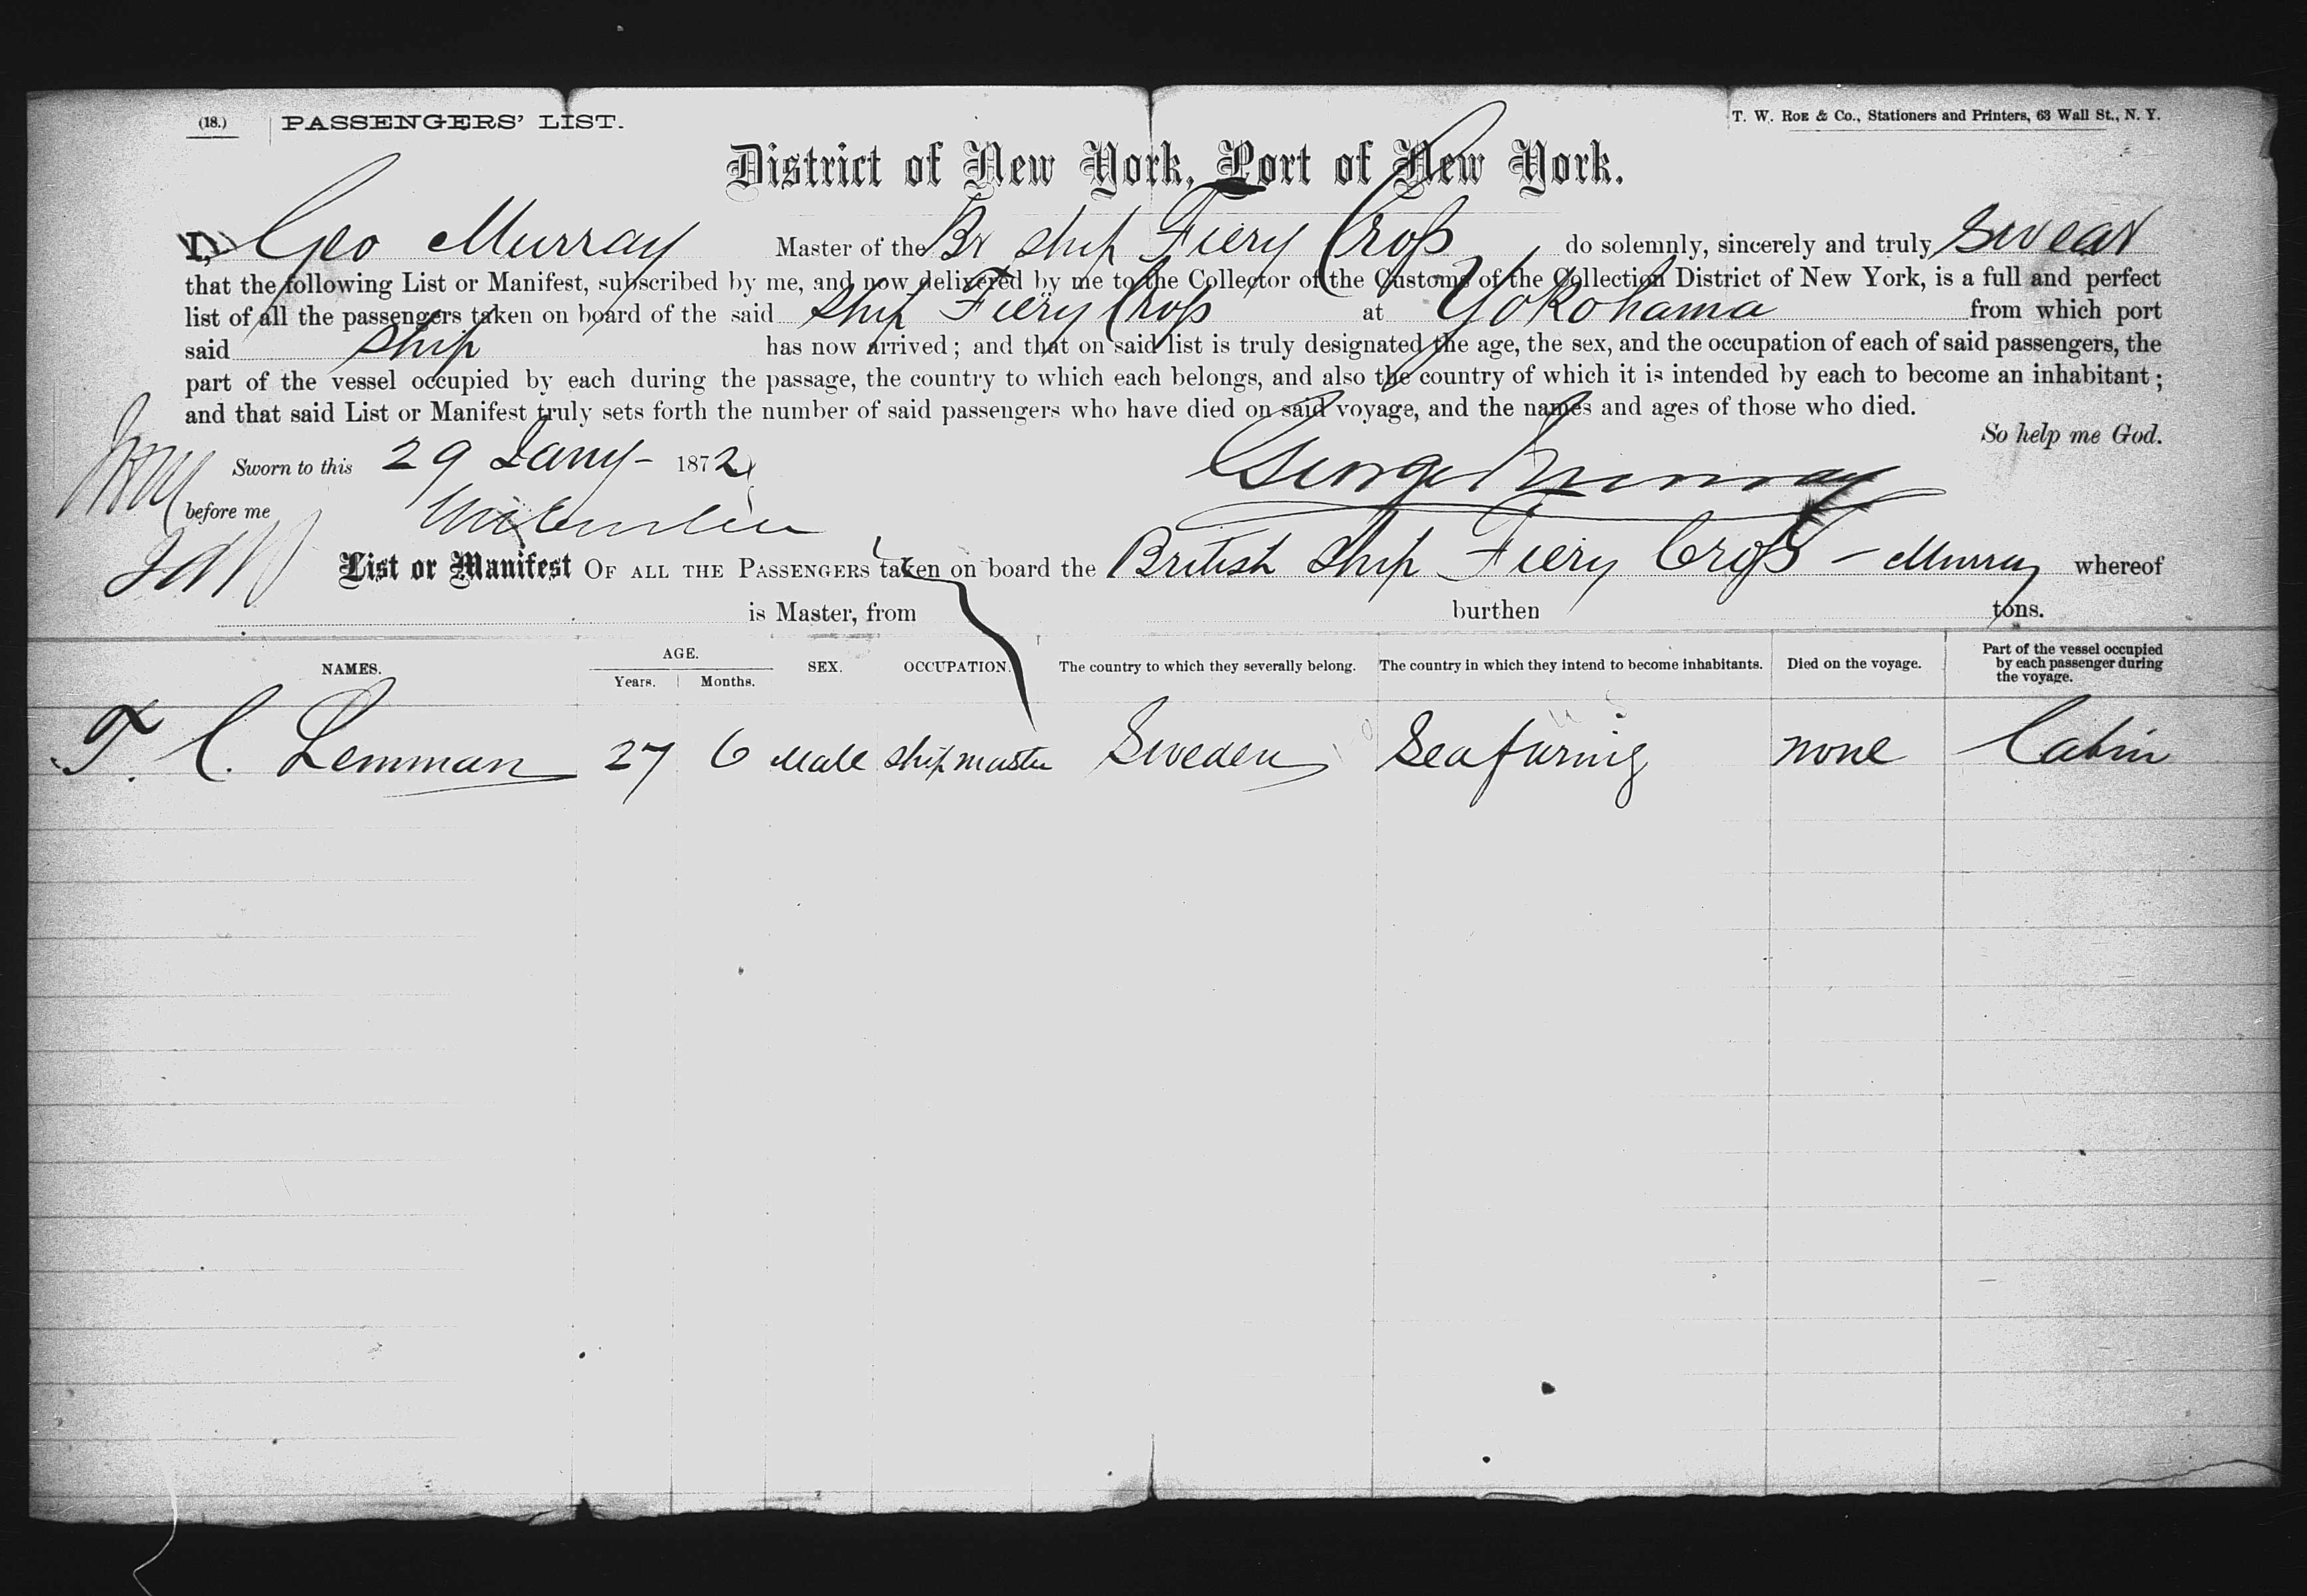 (18.) PASSENGERS' LIST.
T. W. Roe & Co., Stationers and Printers, 63 Wall St., N. Y.
District of New York, Port of New York.
I, Geo Murray Master of the Br Ship Fiery Cross do solemnly, sincerely and truly Swear
that the following List or Manifest, subscribed by me, and now delivered by me to the Collector of the Customs of the Collection District of New York, is a full and perfect
list of all the passengers taken on board of the said Ship Fiery Cross at Yokohama from which port
said Ship has now arrived; and that on said list is truly designated the age, the sex, and the occupation of each of said passengers, the
part of the vessel occupied by each during the passage, the country to which each belongs, and also the country of which it is intended by each to become an inhabitant;
and that said List or Manifest truly sets forth the number of said passengers who have died on said voyage, and the names and ages of those who died.
So help me God.
Sworn to this 29 Jany - 1872
George Murray
before me
List or Manifest OF ALL THE PASSENGERS taken on board the British Ship Fiery Cross - Murray whereof
is Master, from burthen tons.
NAMES. AGE. Years. Months. SEX. OCCUPATION. The country to which they severally belong. The country in which they intend to become inhabitants. Died on the voyage. Part of the vessel occupied by each passenger during the voyage.
T. C. Lemman 27 6 Male Shipmaster Sweden Seafaring none Cabin